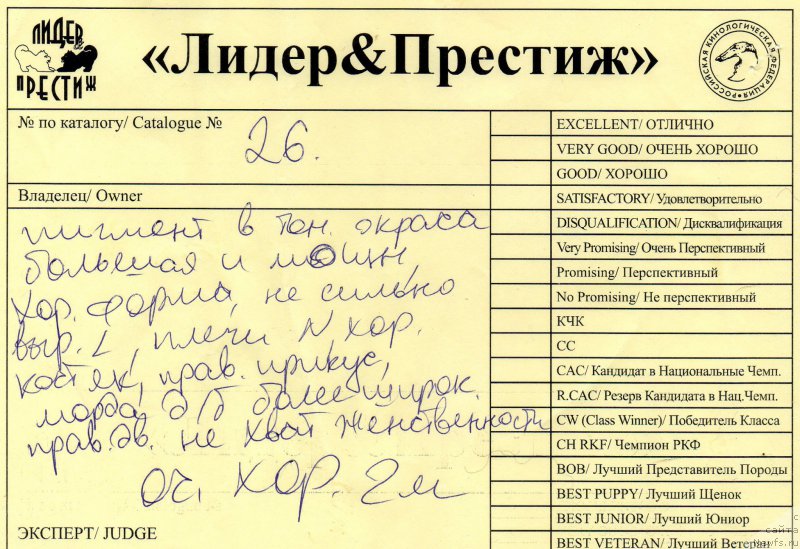 ЛИДЕР
&
ПРЕСТИЖ
«Лидер&Престиж»
РОССИЙСКАЯ КИНОЛОГИЧЕСКАЯ ФЕДЕРАЦИЯ
№ по каталогу/ Catalogue №
26.
Владелец/ Owner
пигмент в тон. окраса
большая и мощн,
хор. форма, не сильно
выр. L, плечи N, хор.
костяк, прав. прикус,
морда д/б более широк.
прав. дв. не хват женственности
оч. хор. 2 м
ЭКСПЕРТ/ JUDGE
EXCELLENT/ ОТЛИЧНО
VERY GOOD/ ОЧЕНЬ ХОРОШО
GOOD/ ХОРОШО
SATISFACTORY/ Удовлетворительно
DISQUALIFICATION/ Дисквалификация
Very Promising/ Очень Перспективный
Promising/ Перспективный
No Promising/ Не перспективный
КЧК
CC
CAC/ Кандидат в Национальные Чемп.
R.CAC/ Резерв Кандидата в Нац.Чемп.
CW (Class Winner)/ Победитель Класса
CH RKF/ Чемпион РКФ
BOB/ Лучший Представитель Породы
BEST PUPPY/ Лучший Щенок
BEST JUNIOR/ Лучший Юниор
BEST VETERAN/ Лучший Ветеран
с
сайта